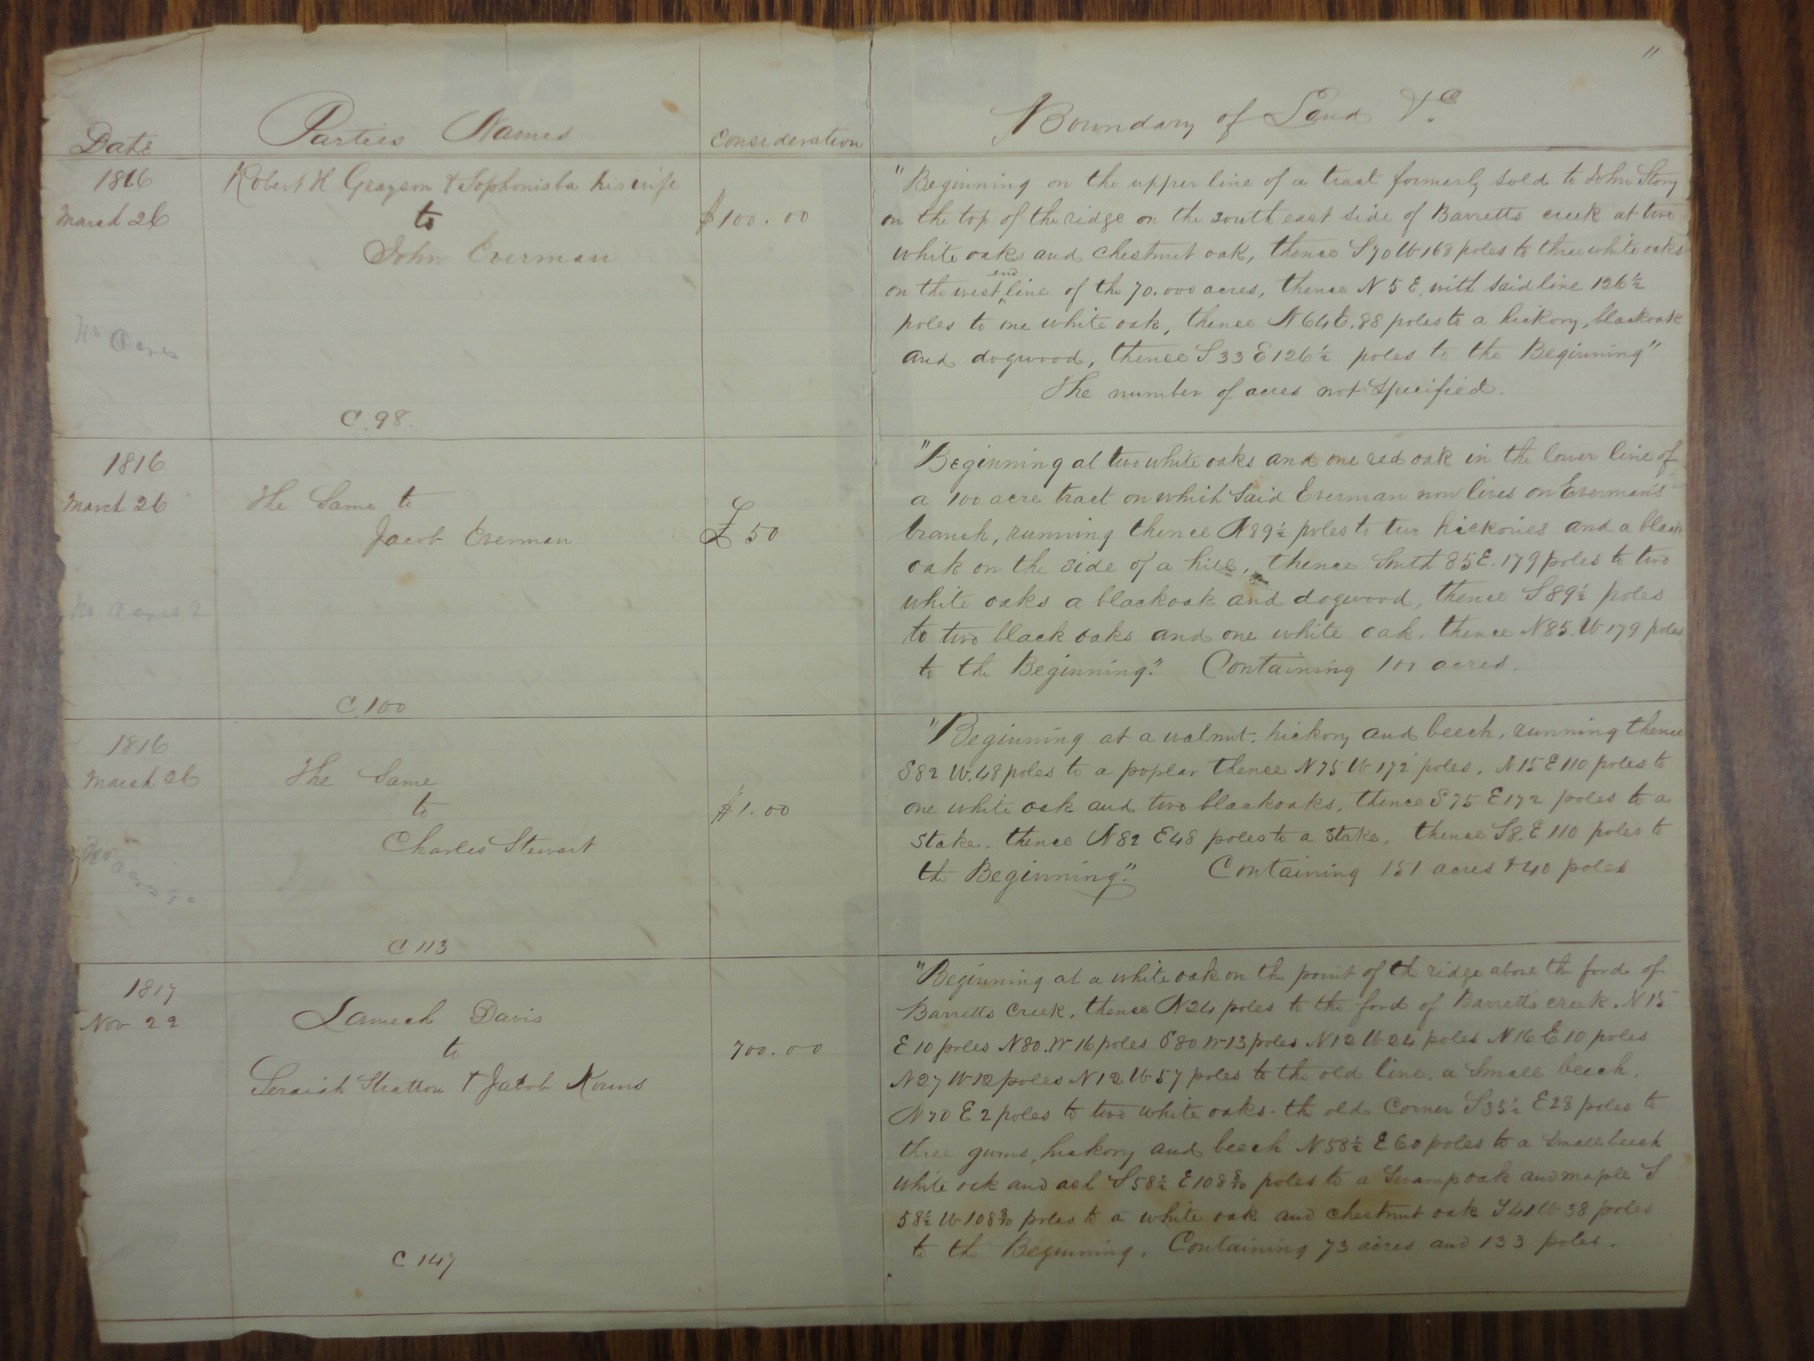 11
Date
Parties Names
Consideration
Boundary of Land &c
1816
March 26
Robert H Grayson & Sophonisba his wife
to
John Everman
$100.00
No Acres
C. 98.
"Beginning on the upper line of a tract formerly sold to John Story
on the top of the ridge on the south east side of Barretts creek at two
white oaks and chestnut oak, thence S 70 W 168 poles to three white oaks
on the west end line of the 70.000 acres, thence N 5 E. with said line 126 1/2
poles to one white oak, thence N 64 E. 88 poles to a hickory, blackoak
and dogwood, thence S 33 E 126 1/2 poles to the Beginning"
The number of acres not specified.
1816
March 26
The Same to
Jacob Everman
£ 50
No acres
C. 100
"Beginning at two white oaks and one red oak in the lower line of
a 100 acre tract on which said Everman now lives on Everman's
branch, running thence N 89 1/2 poles to two hickories and a black
oak on the side of a hill, thence South 85 E. 179 poles to two
white oaks a blackoak and dogwood, thence S 89 1/2 poles
to two black oaks and one white oak. thence N 85. W 179 poles
to the Beginning." Containing 100 acres.
1816
March 26
The Same
to
Charles Stewart
$1.00
No
C 113
"Beginning at a walnut, hickory and beech, running thence
S 82 W. 48 poles to a poplar thence N 75 W 172 poles. N 15 E 110 poles to
one white oak and two blackoaks, thence S 75 E 172 poles to a
Stake. thence N 82 E 48 poles to a Stake, thence S 8. E 110 poles to
th Beginning." Containing 151 acres & 40 poles
1817
Nov 22
Lamech Davis
to
Seraiah Stratton & Jacob Kouns
700.00
C 147
"Beginning at a white oak on the point of th ridge above th ford of
Barretts Creek, thence N 24 poles to the ford of Barretts creek. N 15
E 10 poles N 80. W 16 poles S 80 W 13 poles N 12 W 24 poles N 16 E 10 poles
N 27 W 12 poles N 12 W 57 poles to the old line, a small beech.
N 70 E 2 poles to two white oaks - th old corner S 35 1/2 E 28 poles to
three gums, hickory and beech N 58 1/2 E 60 poles to a small beech
white oak and ash S 58 1/2 E 108 poles to a Swamp oak and maple S
58 1/2 W 108 poles to a white oak and chestnut oak S 41 W 38 poles
to th Beginning. Containing 73 acres and 133 poles.